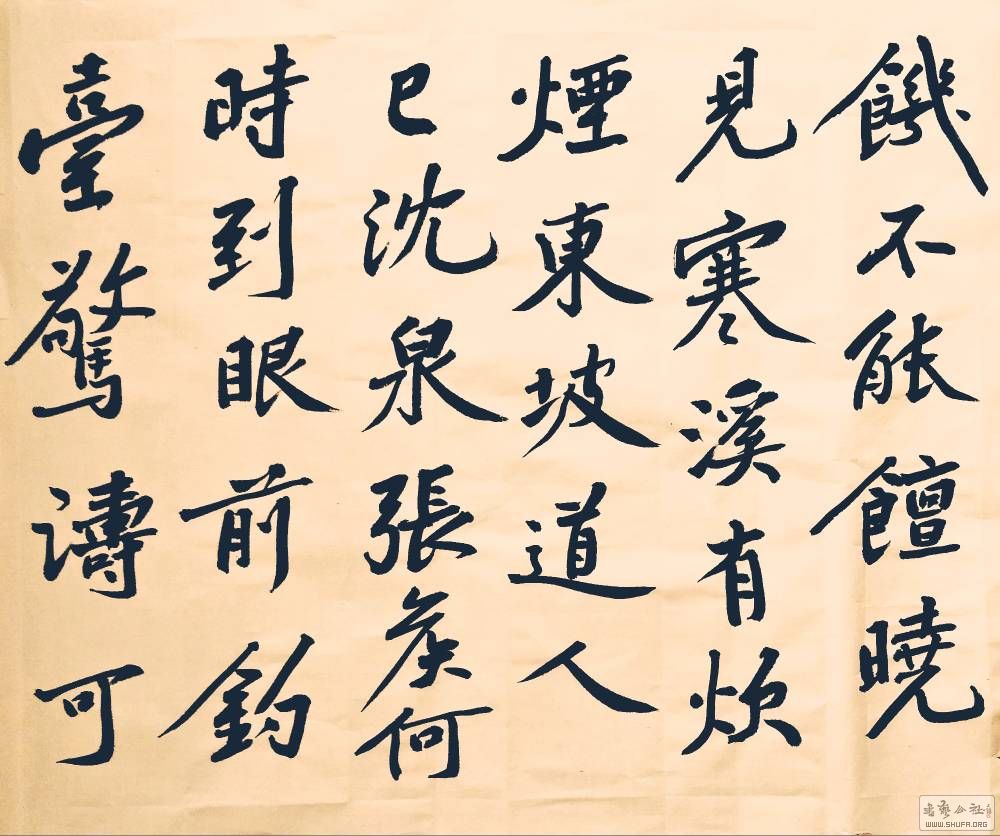 饑不能饘曉
見寒溪有炊
煙東坡道人
已沈泉張侯何
時到眼前釣
臺驚濤可
書藝公社
WWW.SHUFA.ORG